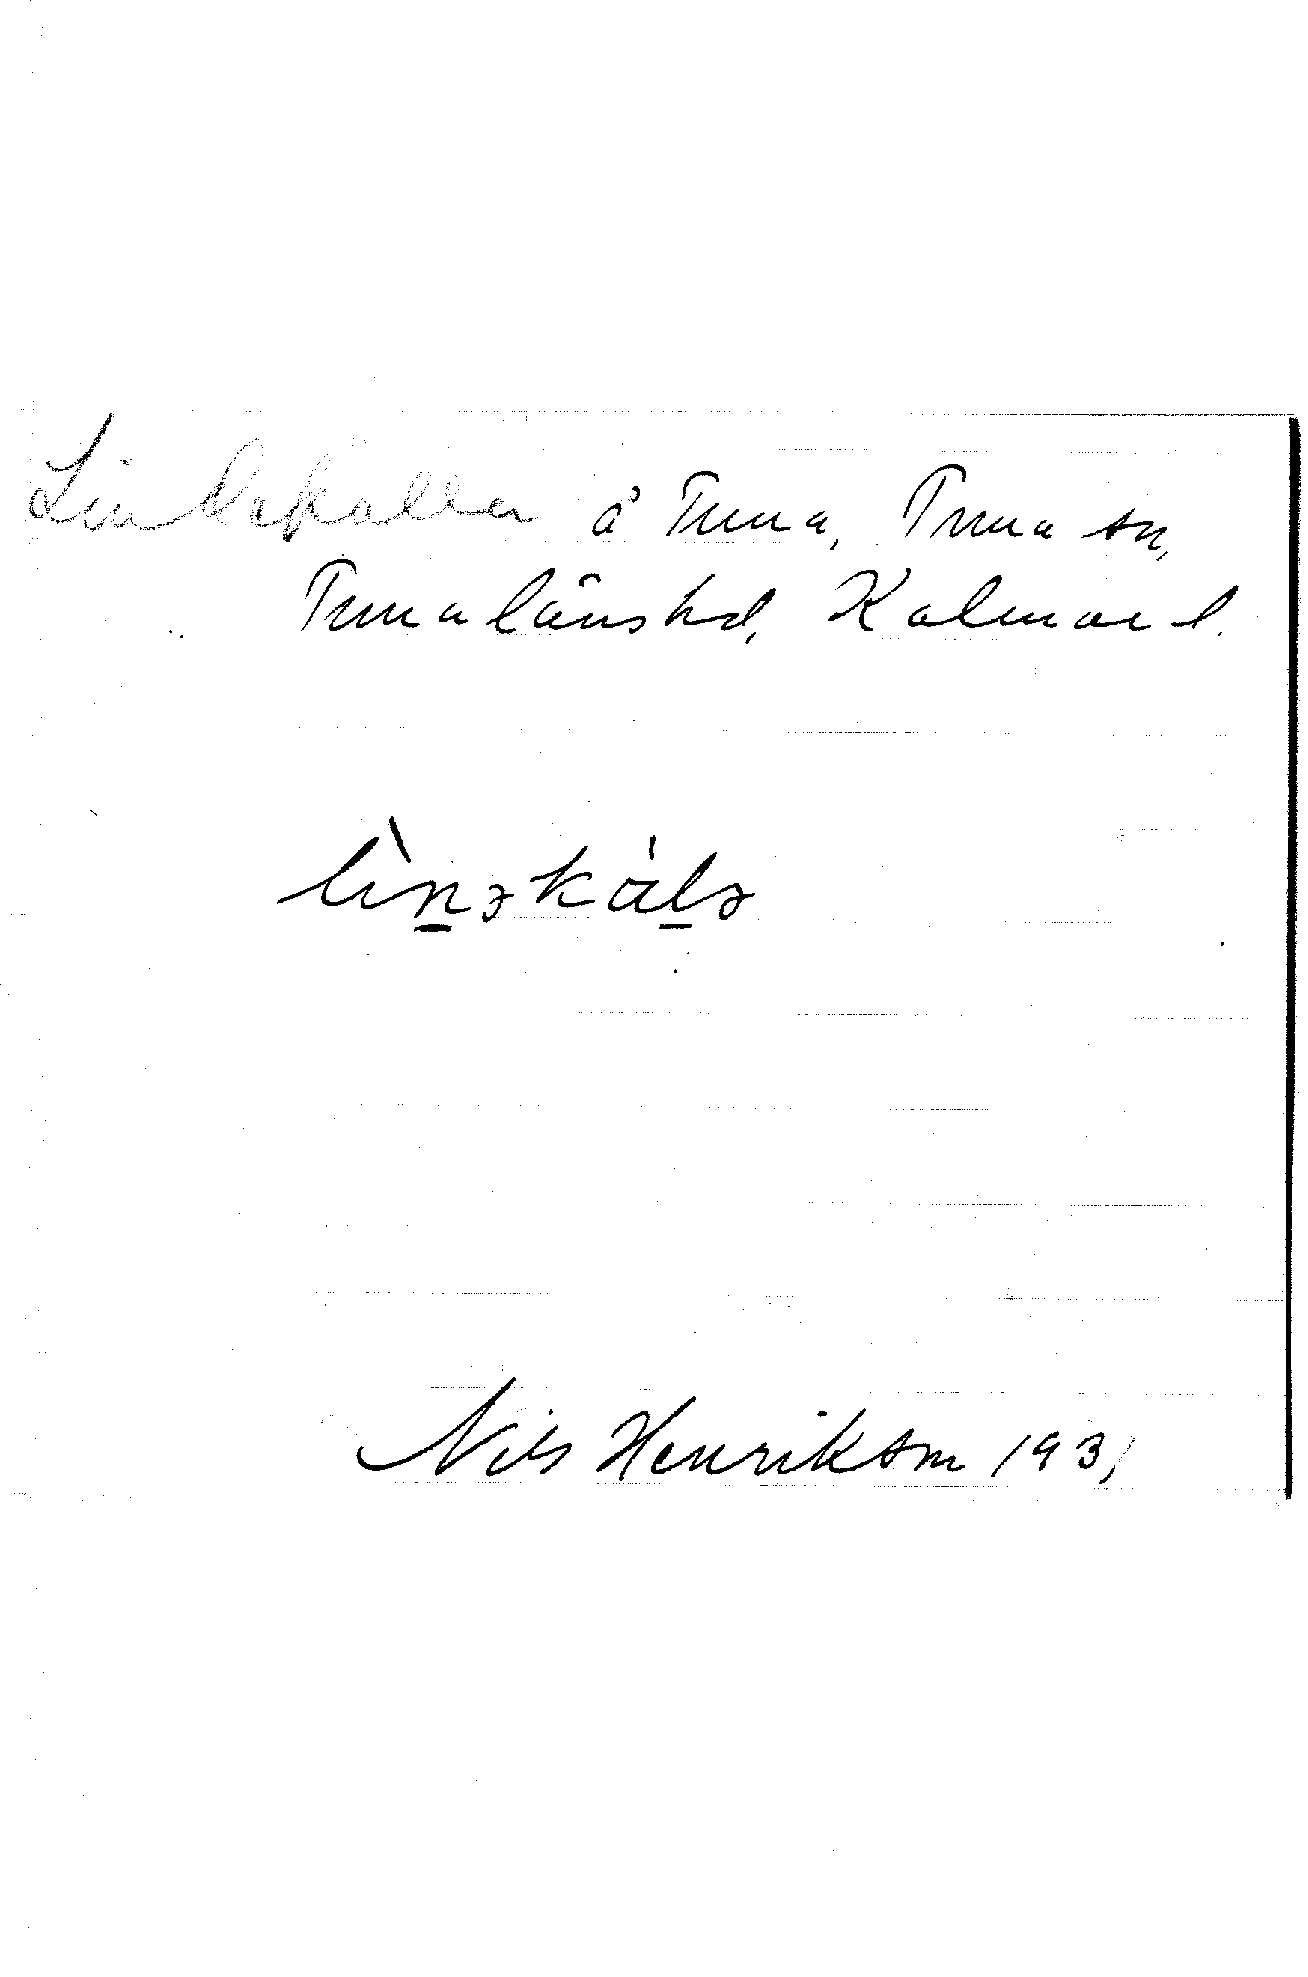 Lindekalla å Tuna, Tuna sn,
Tunalänshd, Kalmar l.
lìnǝkálǝ
Nils Henrikson 1931